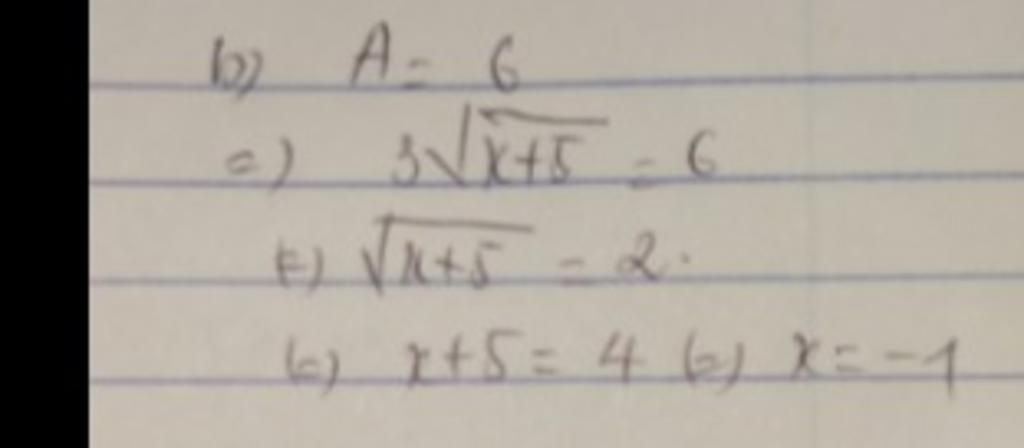 b) A = 6
=) 3√x+5 = 6
(=) √x+5 = 2.
(=) x+5 = 4 (=) x = -1